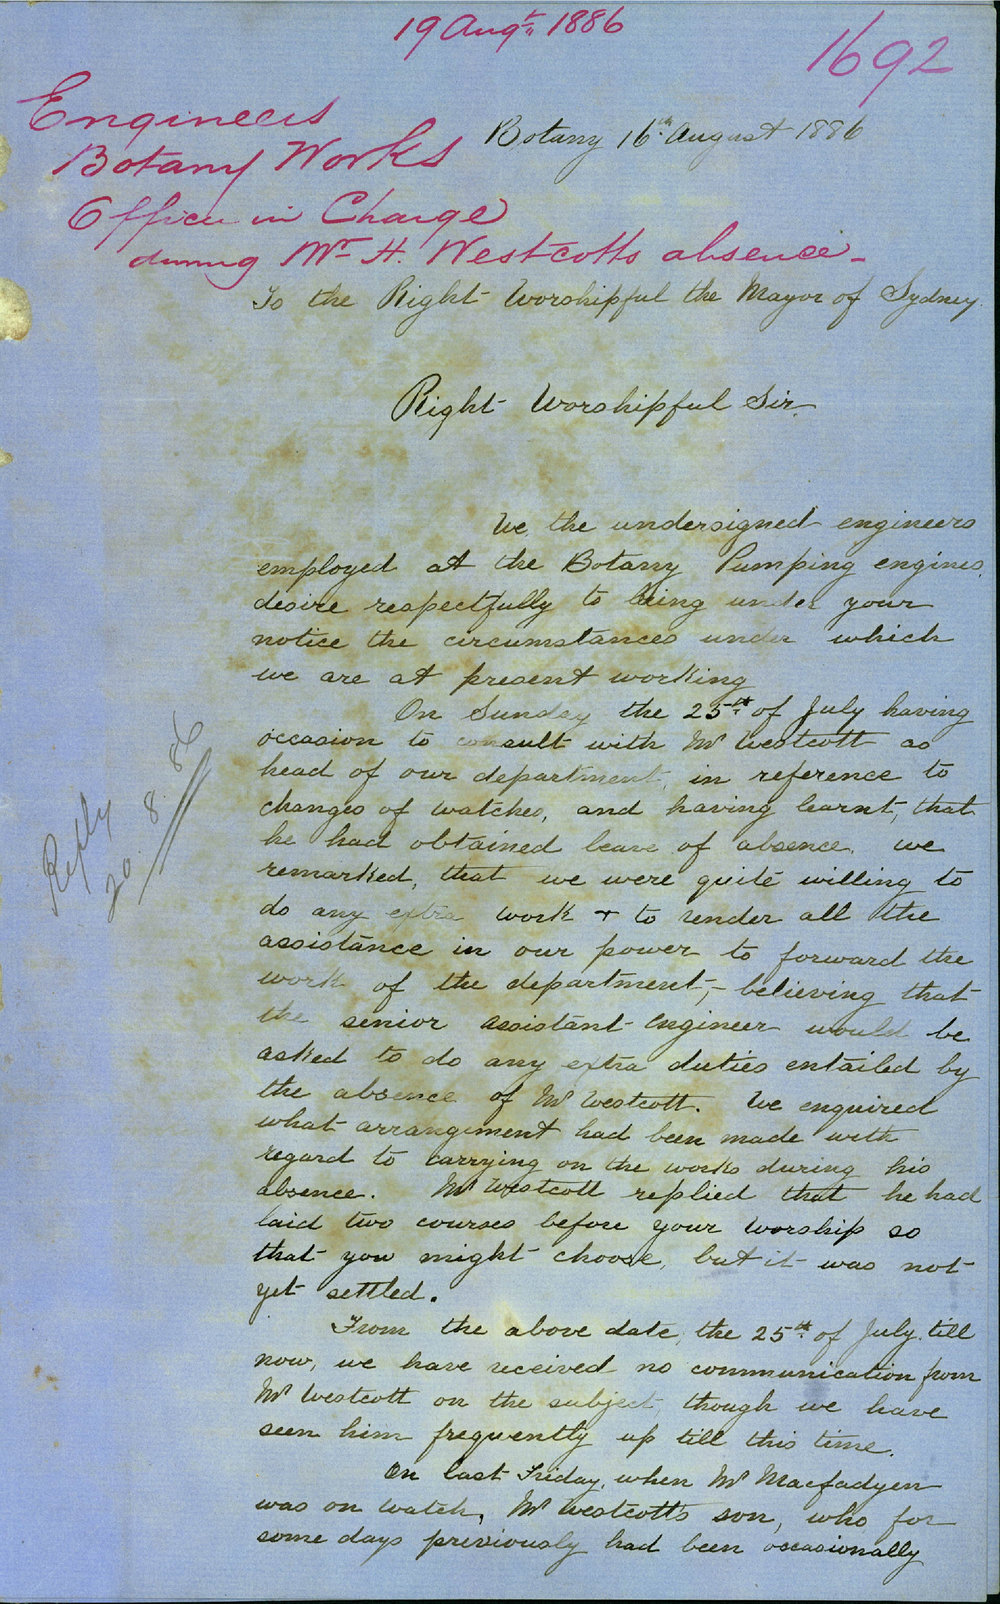 19 Augt. 1886
1692
Engineers
Botany Works
Officer in Charge
during Mr H. Westcotts absence -
Botany 16th August 1886
To the Right Worshipful the Mayor of Sydney.
Right Worshipful Sir.
We, the undersigned engineers
employed at the Botany Pumping engines,
desire respectfully to bring under your
notice the circumstances under which
we are at present working
On Sunday the 25th of July having
occasion to consult with Mr Westcott as
head of our department, in reference to
changes of watches, and having learnt, that
he had obtained leave of absence, we
remarked, that we were quite willing to
do any extra work + to render all the
assistance in our power to forward the
work of the department,- believing that
the senior assistant engineer would be
asked to do any extra duties entailed by
the absence of Mr Westcott. We enquired
what arrangement had been made with
regard to carrying on the works during his
absence. Mr Westcott replied that he had
laid two courses before your worship so
that you might choose, but it was not
yet settled.
From the above date, the 25th of July, till
now, we have received no communication from
Mr Westcott on the subject, though we have
seen him frequently up till this time.
On last Friday, when Mr Macfadyen
was on watch, Mr Westcott's son, who for
some days previously had been occasionally
Reply
20. 8. 86